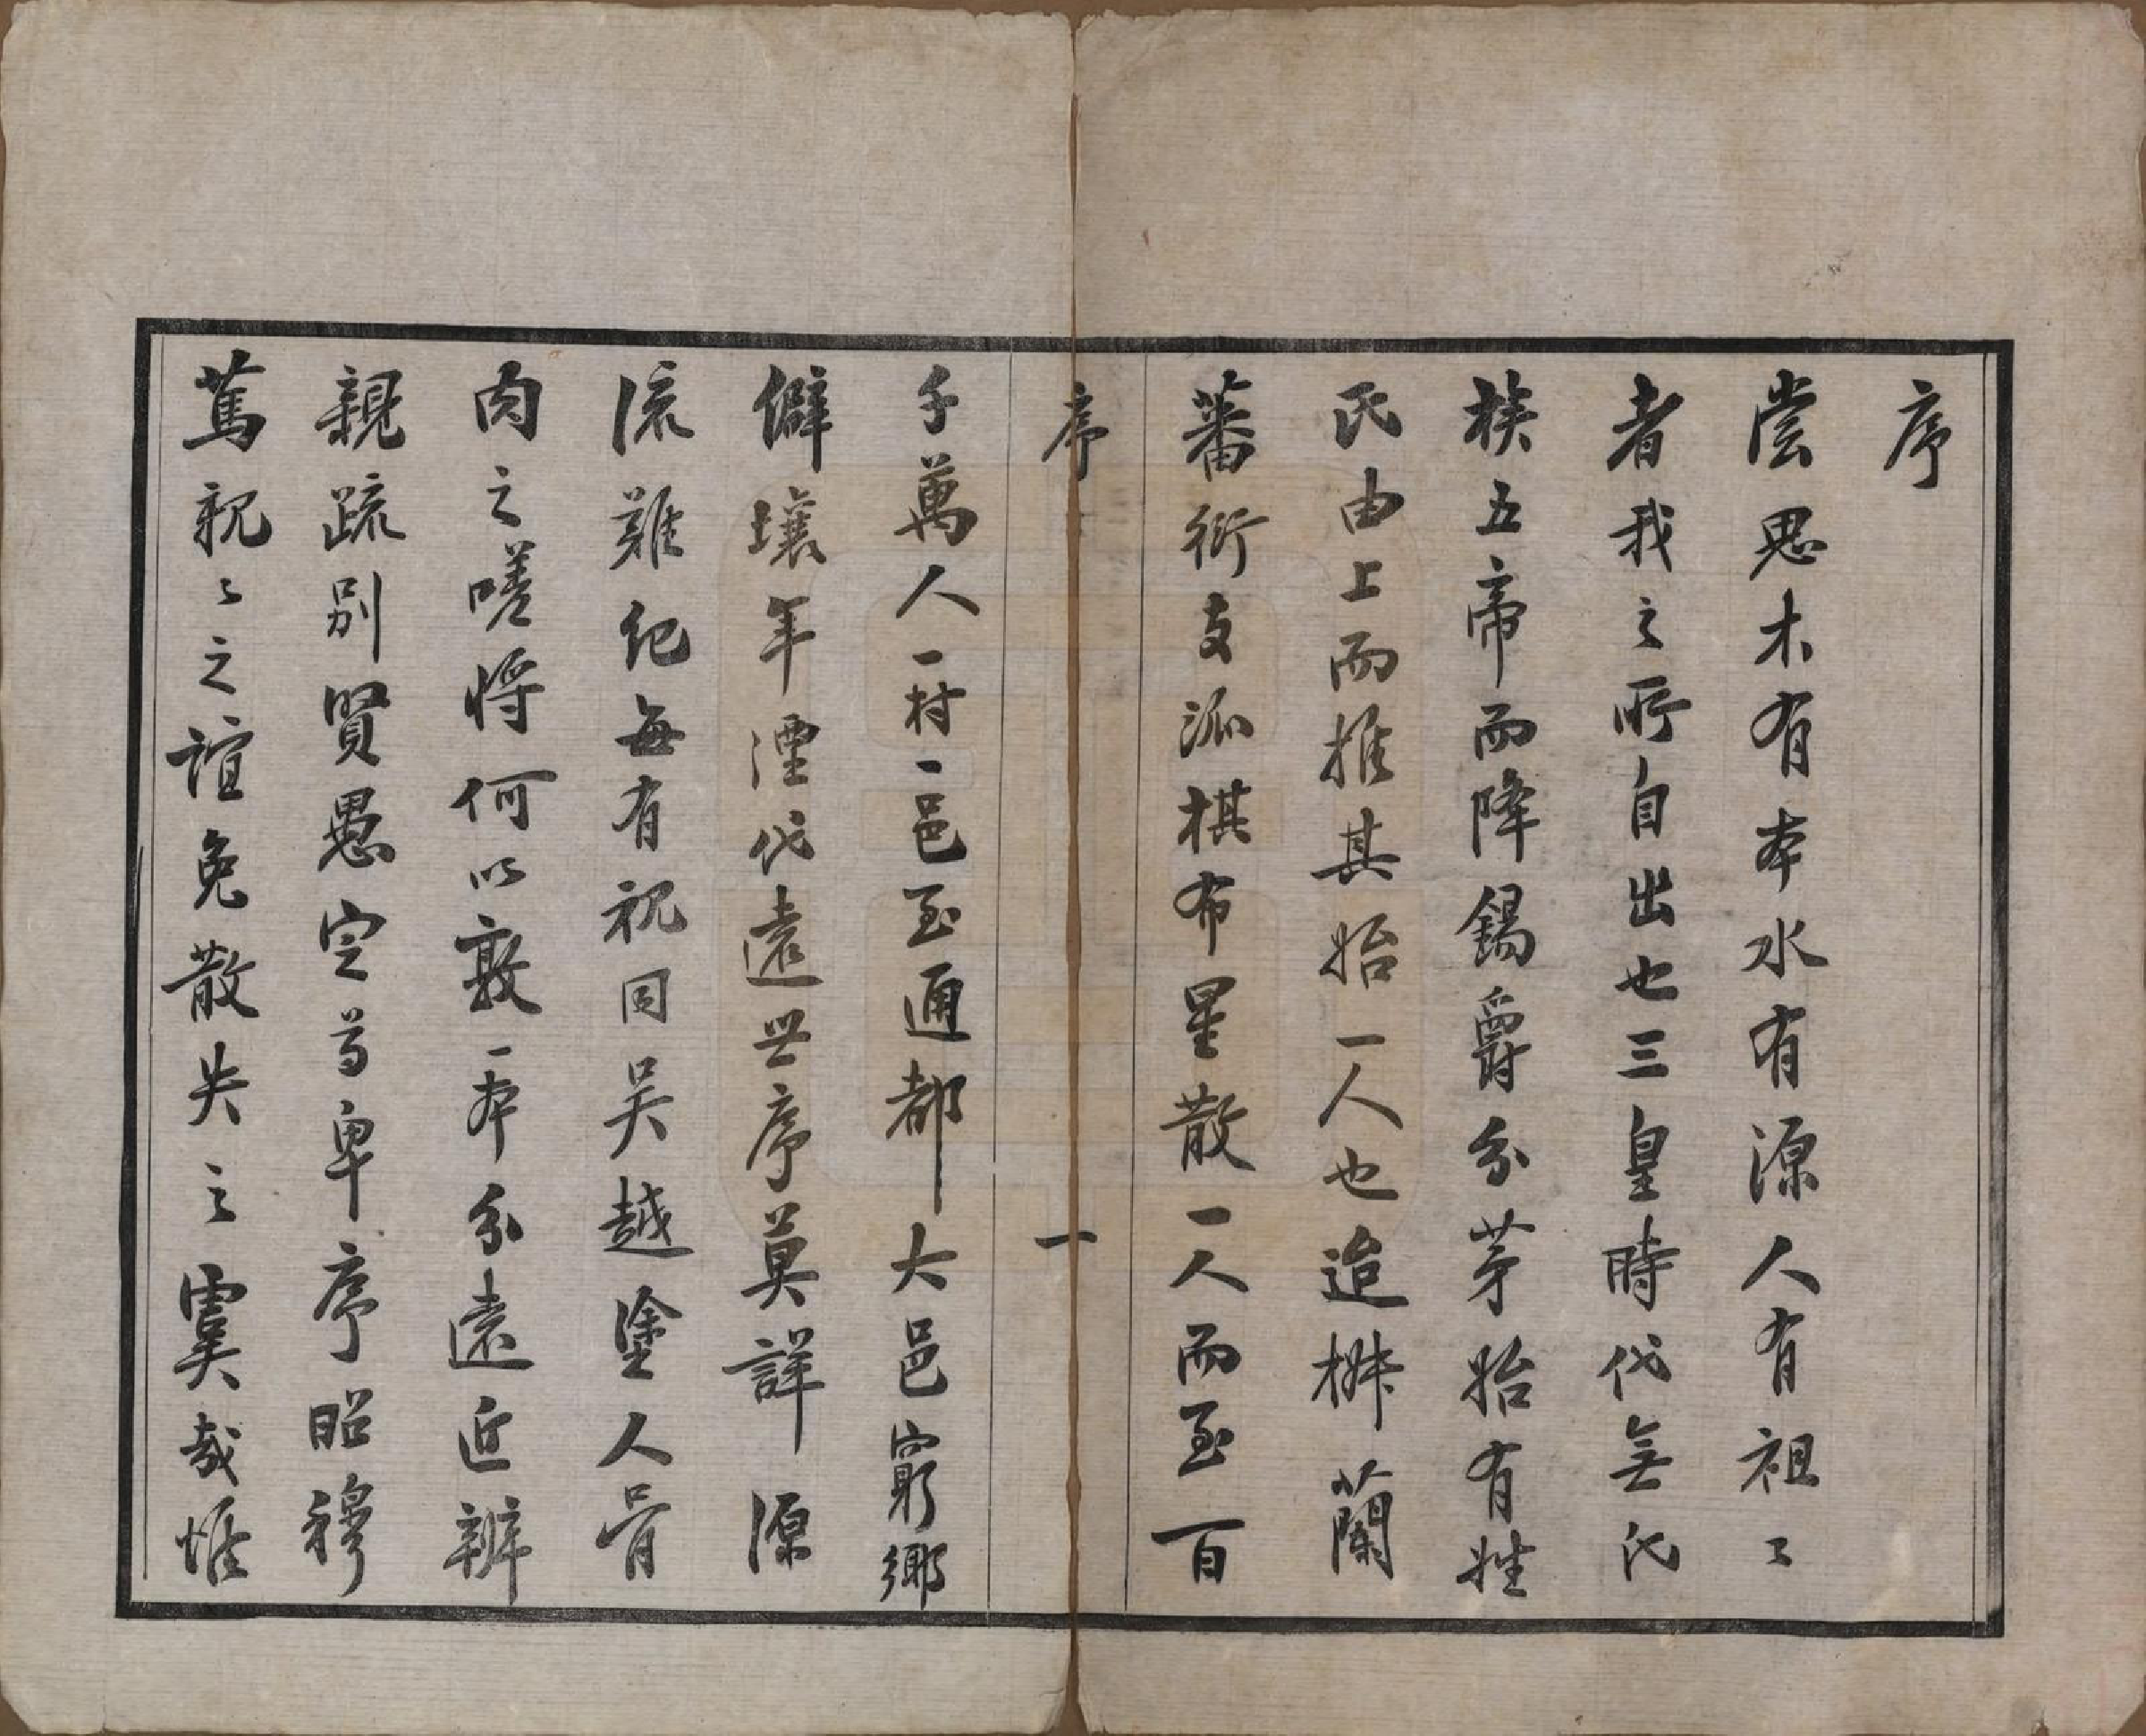 序
嘗思木有本水有源人有祖〻
者我之所自出也三皇時代無氏
族五帝而降錫爵分茅始有姓
氏由上而推其始一人也迨椒蘭
蕃衍支派棋布星散一人而至百
序
一
千萬人一村一邑至通都大邑窮鄉
僻壤年湮代遠世序莫詳源
流難紀每有視同吳越塗人骨
肉之嗟將何以敦一本分遠近辨
親疏別賢愚定尊卑序昭穆
篤親〻之誼免散失之虞哉惟